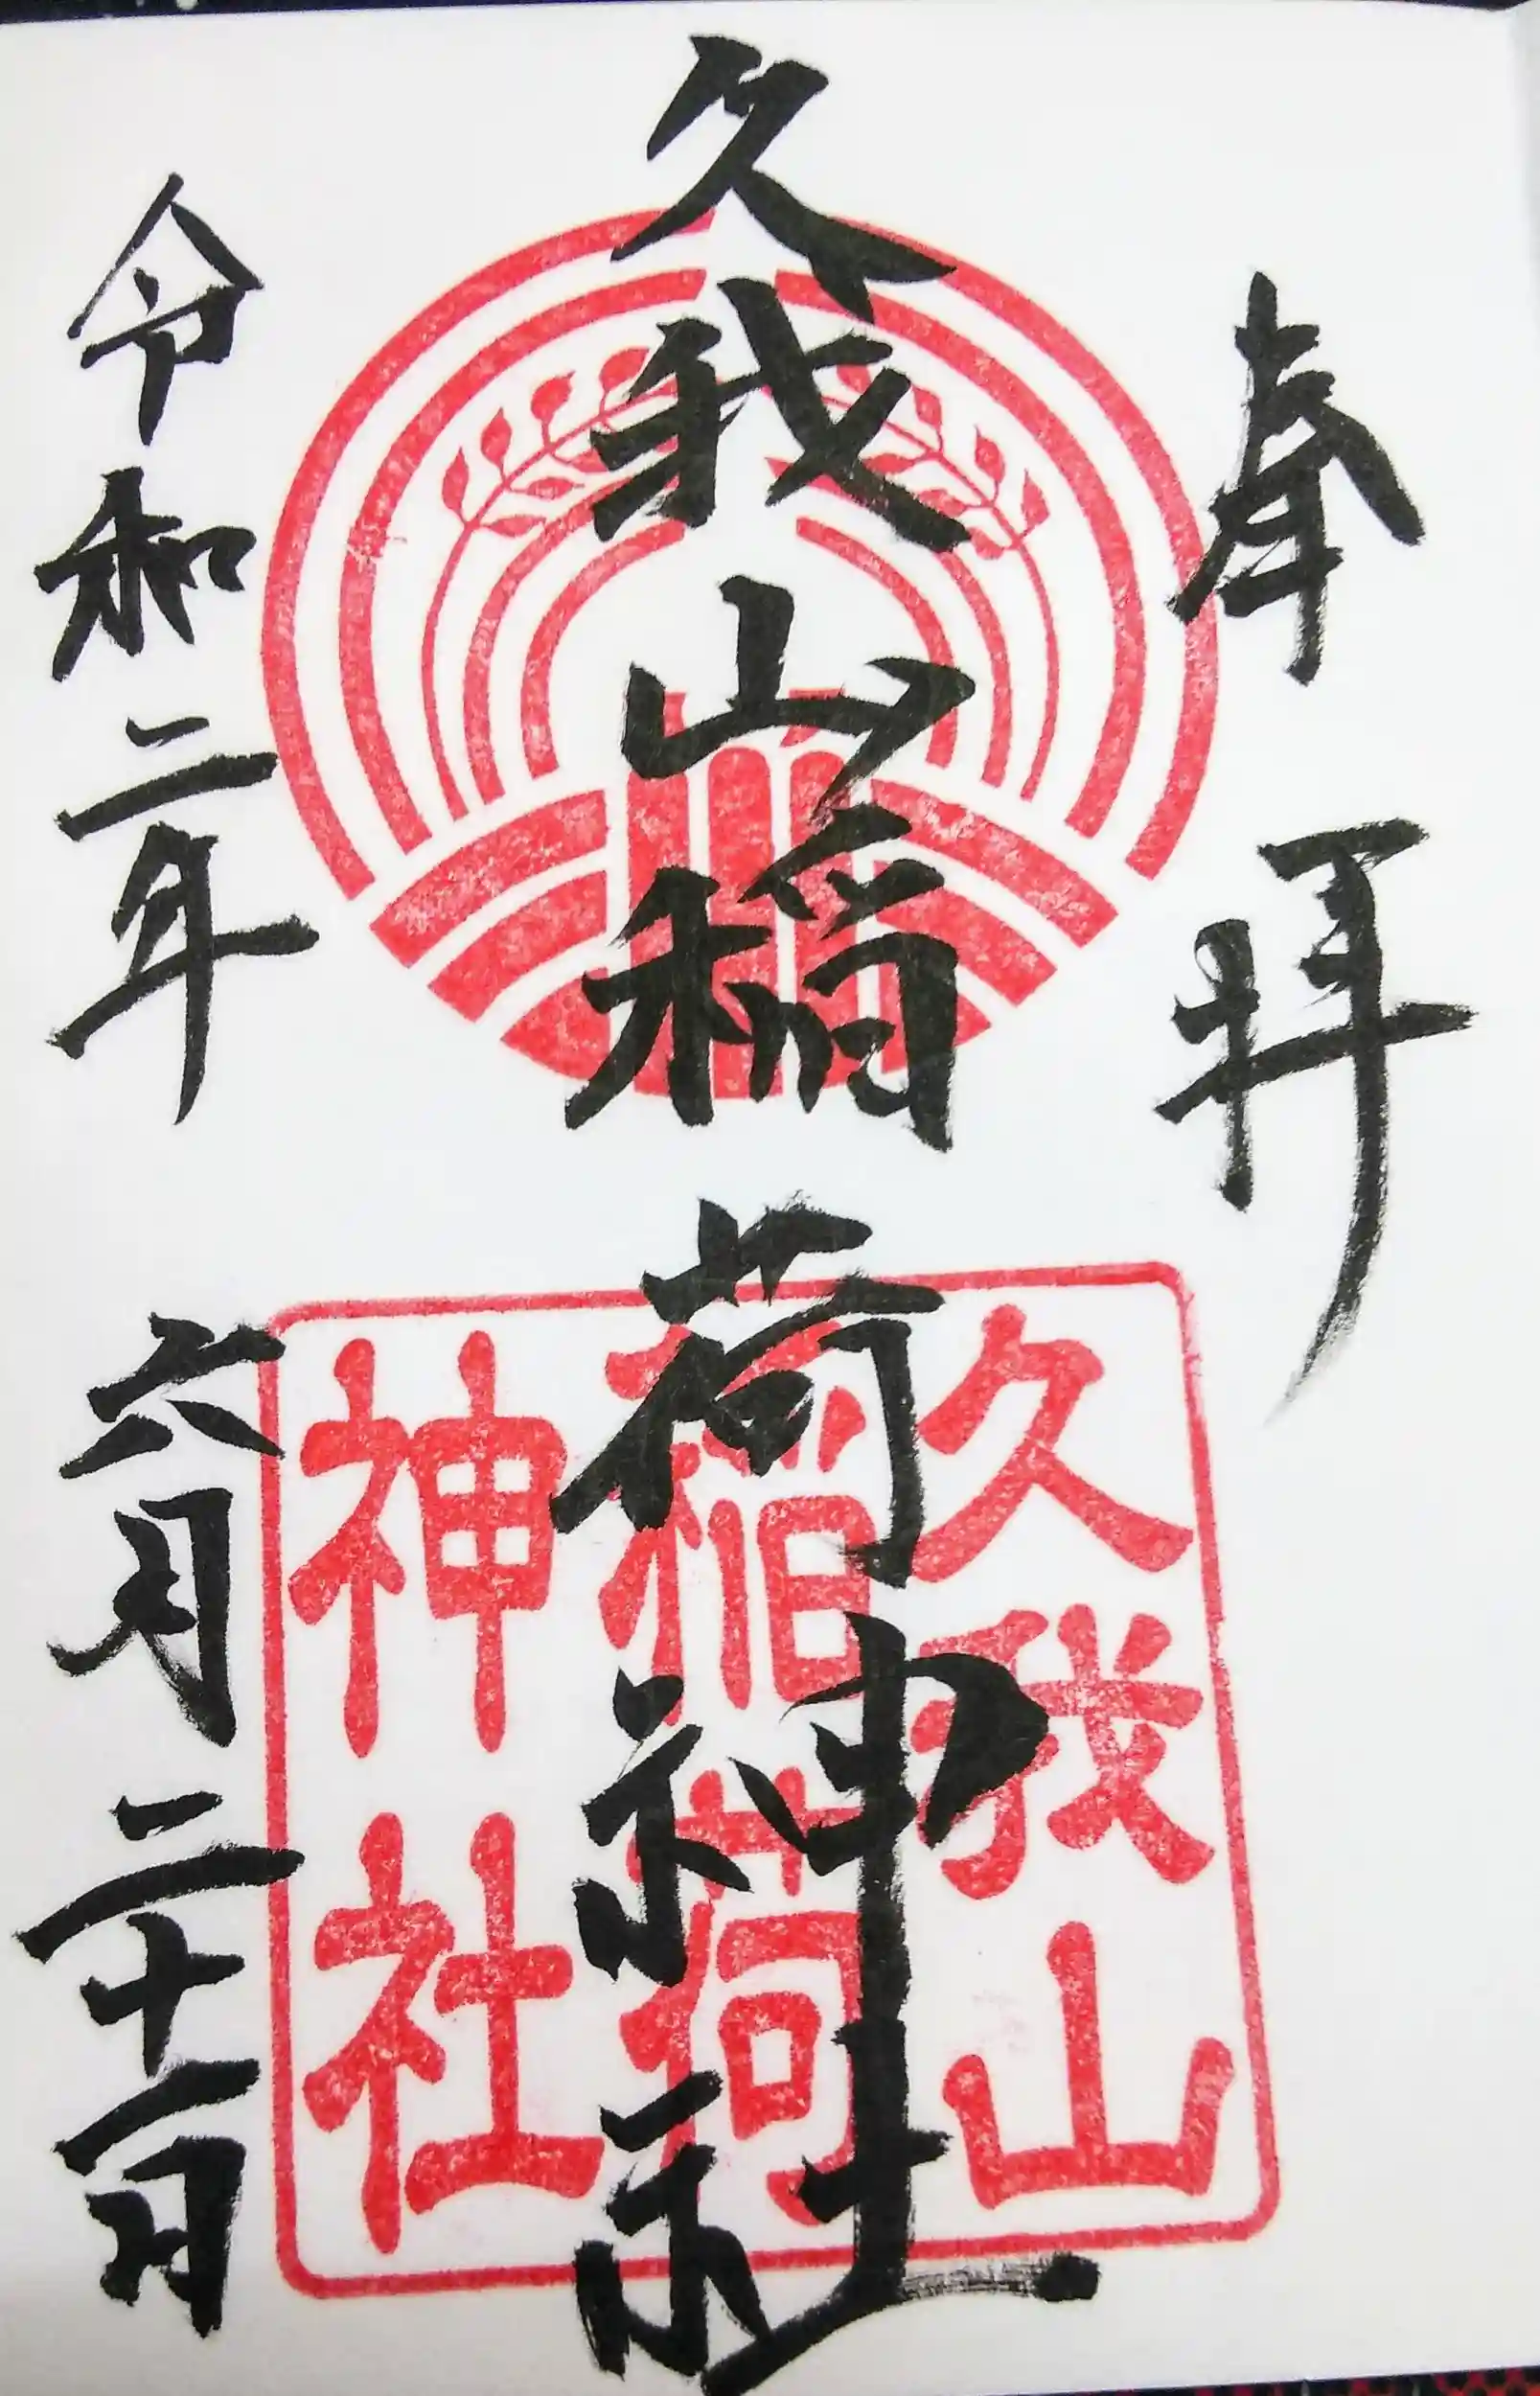 奉拝
久我山稲荷神社
令和二年六月二十一日
久我山
稲荷
神社